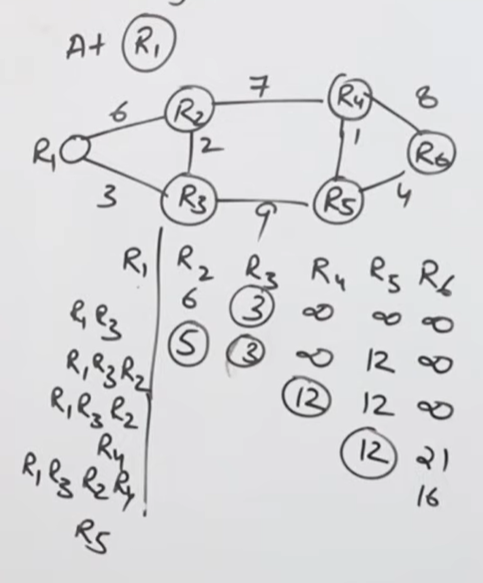 At R1
6 R2 7 R4 8
R1 2 1 R6
3 R3 9 R5 4
R1 R2 R3 R4 R5 R6
R1R3 6 3 ∞ ∞ ∞
R1R3R2 5 3 ∞ 12 ∞
R1R3R2 12 12 ∞
R4 12 21
R1R3R2R4 16
R5